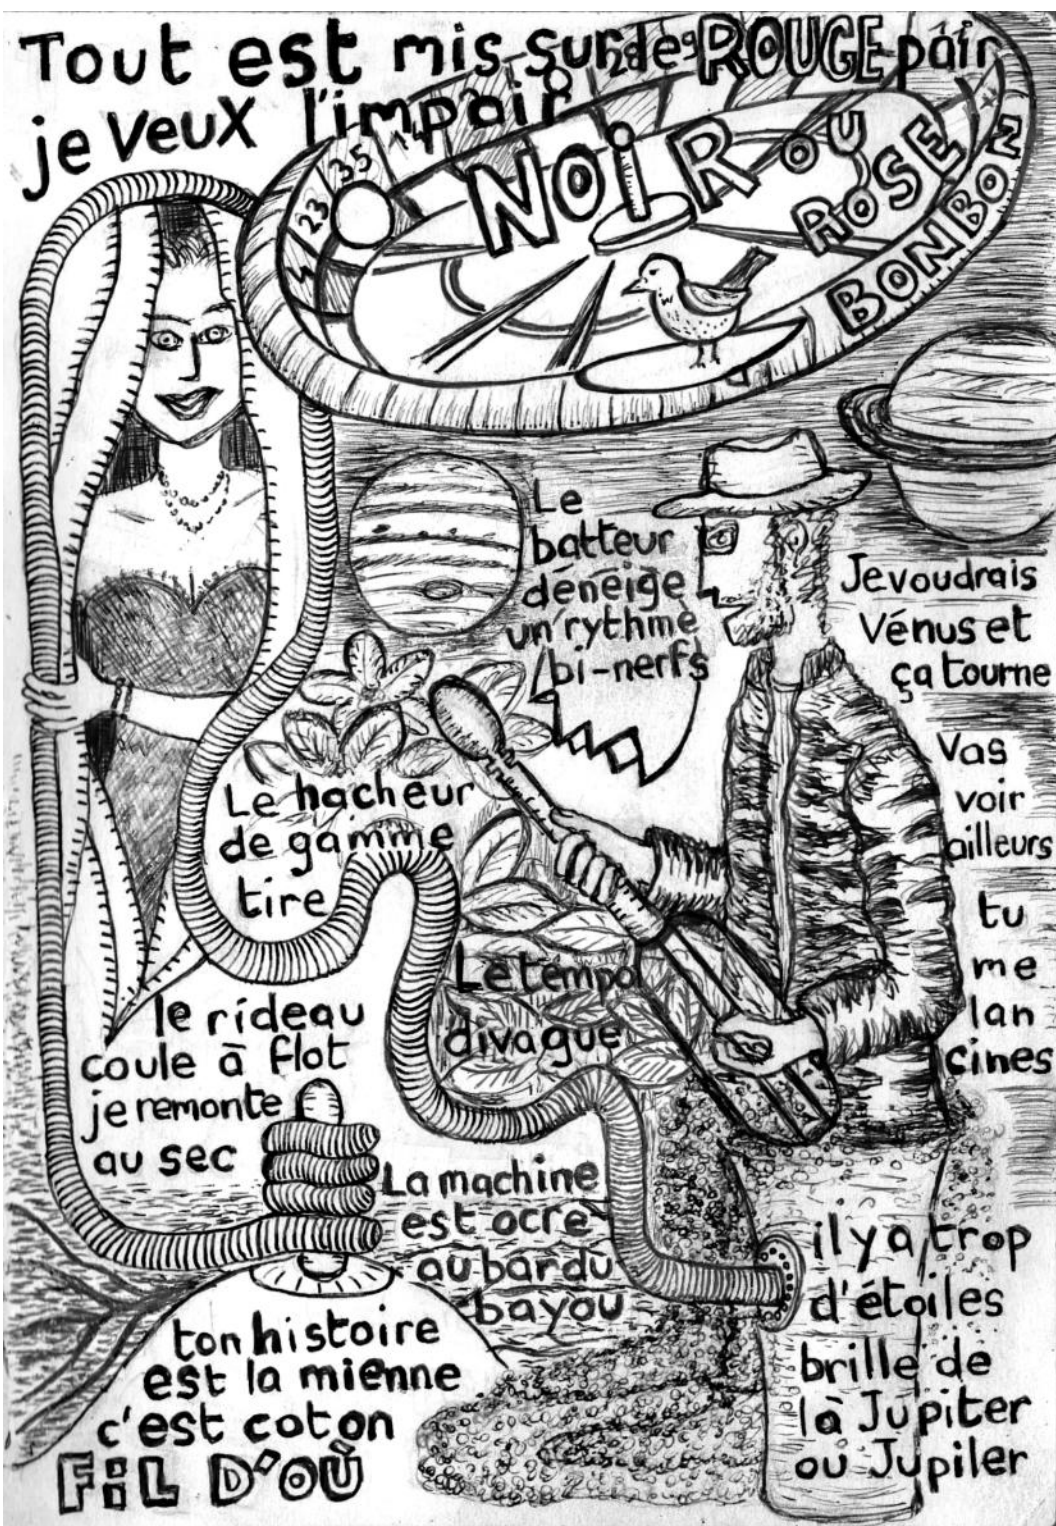 Tout est mis sur le ROUGE pair
je veux l'impair
NOIR OU
ROSE
BONBON
35
14
23
4
Le
batteur
déneige
un rythme
/bi-nerfs
Je voudrais
Vénus et
ça tourne
Vas
voir
ailleurs
tu
me
lan
cines
Le hacheur
de gamme
tire
Le tempo
divague
le rideau
coule à flot
je remonte
au sec
La machine
est ocre
au bar du
bayou
il y a trop
d'étoiles
brille de
là Jupiter
ou Jupiler
ton histoire
est la mienne
c'est coton
FiL D'OÙ